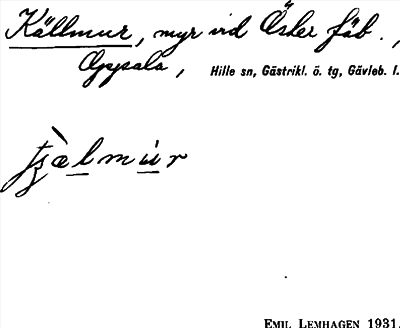 Källmur, myr vid Öster fäb.,
Oppsala, Hille sn, Gästrikl. ö. tg, Gävleb. l.
tjælmur
EMIL LEMHAGEN 1931.